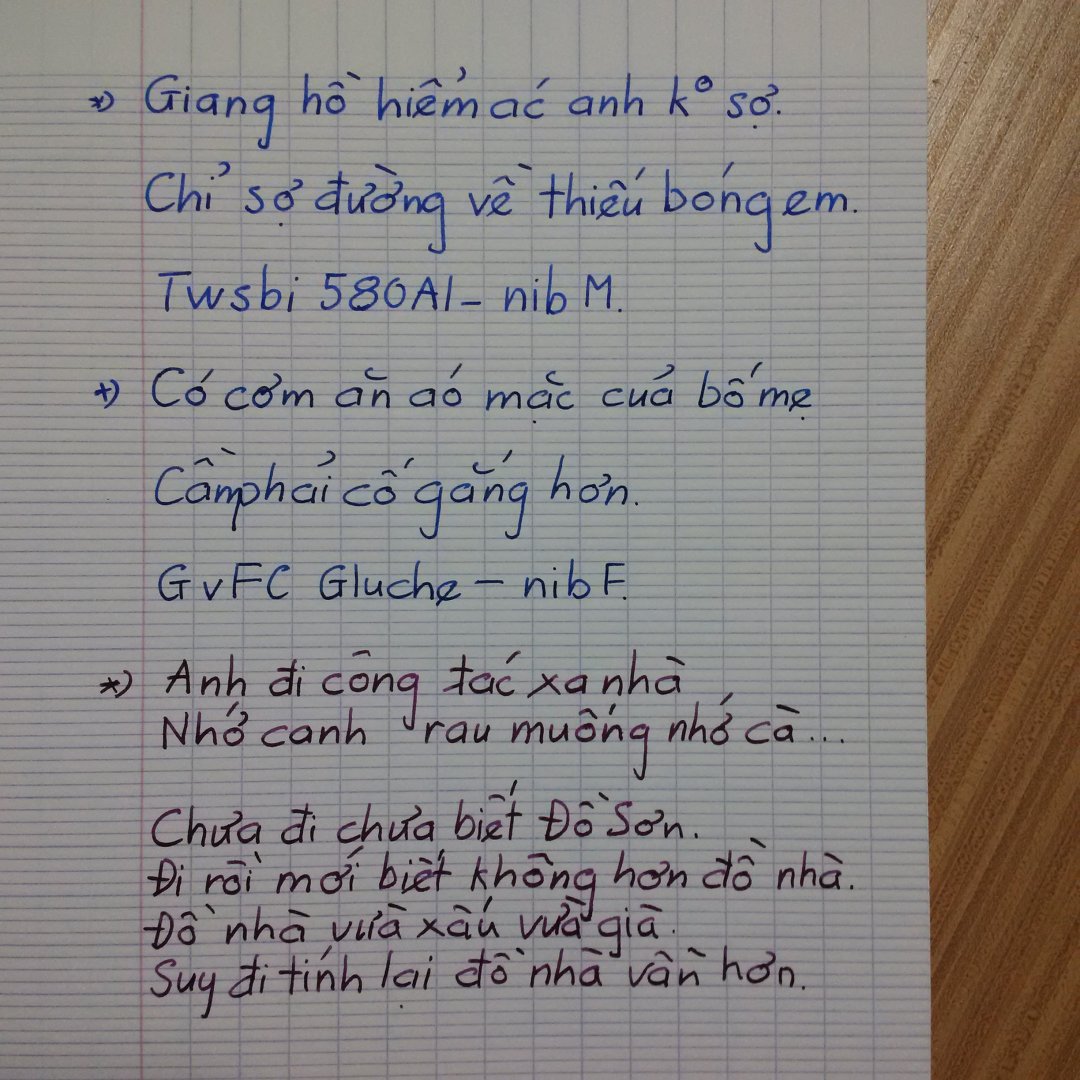 *) Giang hồ hiểm ác anh k° sợ.
Chỉ sợ đường về thiếu bóng em.
Twsbi 580Al - nib M.
+) Có cơm ăn áo mặc của bố mẹ
Cần phải cố gắng hơn.
GvFC Gluche - nib F.
*) Anh đi công tác xa nhà
Nhớ canh rau muống nhớ cà...
Chưa đi chưa biết Đồ Sơn.
Đi rồi mới biết không hơn đồ nhà.
Đồ nhà vừa xấu vừa già.
Suy đi tính lại đồ nhà vẫn hơn.